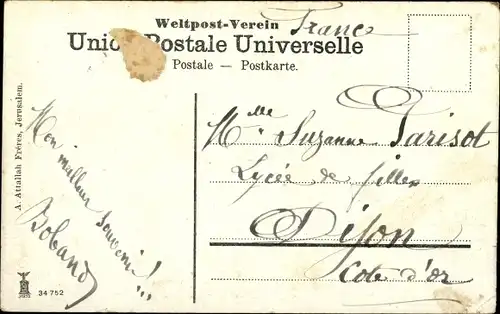 Weltpost-Verein
France
Union Postale Universelle
Postale — Postkarte.
A. Attallah Frères, Jerusalem.
Mon meilleur souvenir!!!
34752
Mlle Suzanne Parisot
Lycée de filles
Dijon
Cote d'or